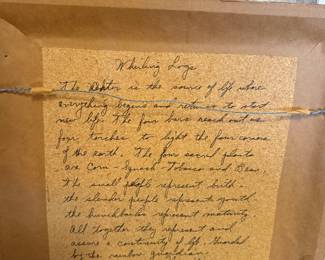 Whirling Logs
The Center is the source of life where
everything begins and returns to start
new life. The four bars reach out as
four torches to light the four corners
of the earth. The four sacred plants
are Corn - Squash - Tobacco and Bean,
The small people represent birth.
the slender people represents youth
the hunchbacks represent maturity.
All together they represent and
assure a continuity of life. Guarded
by the rainbow guardian